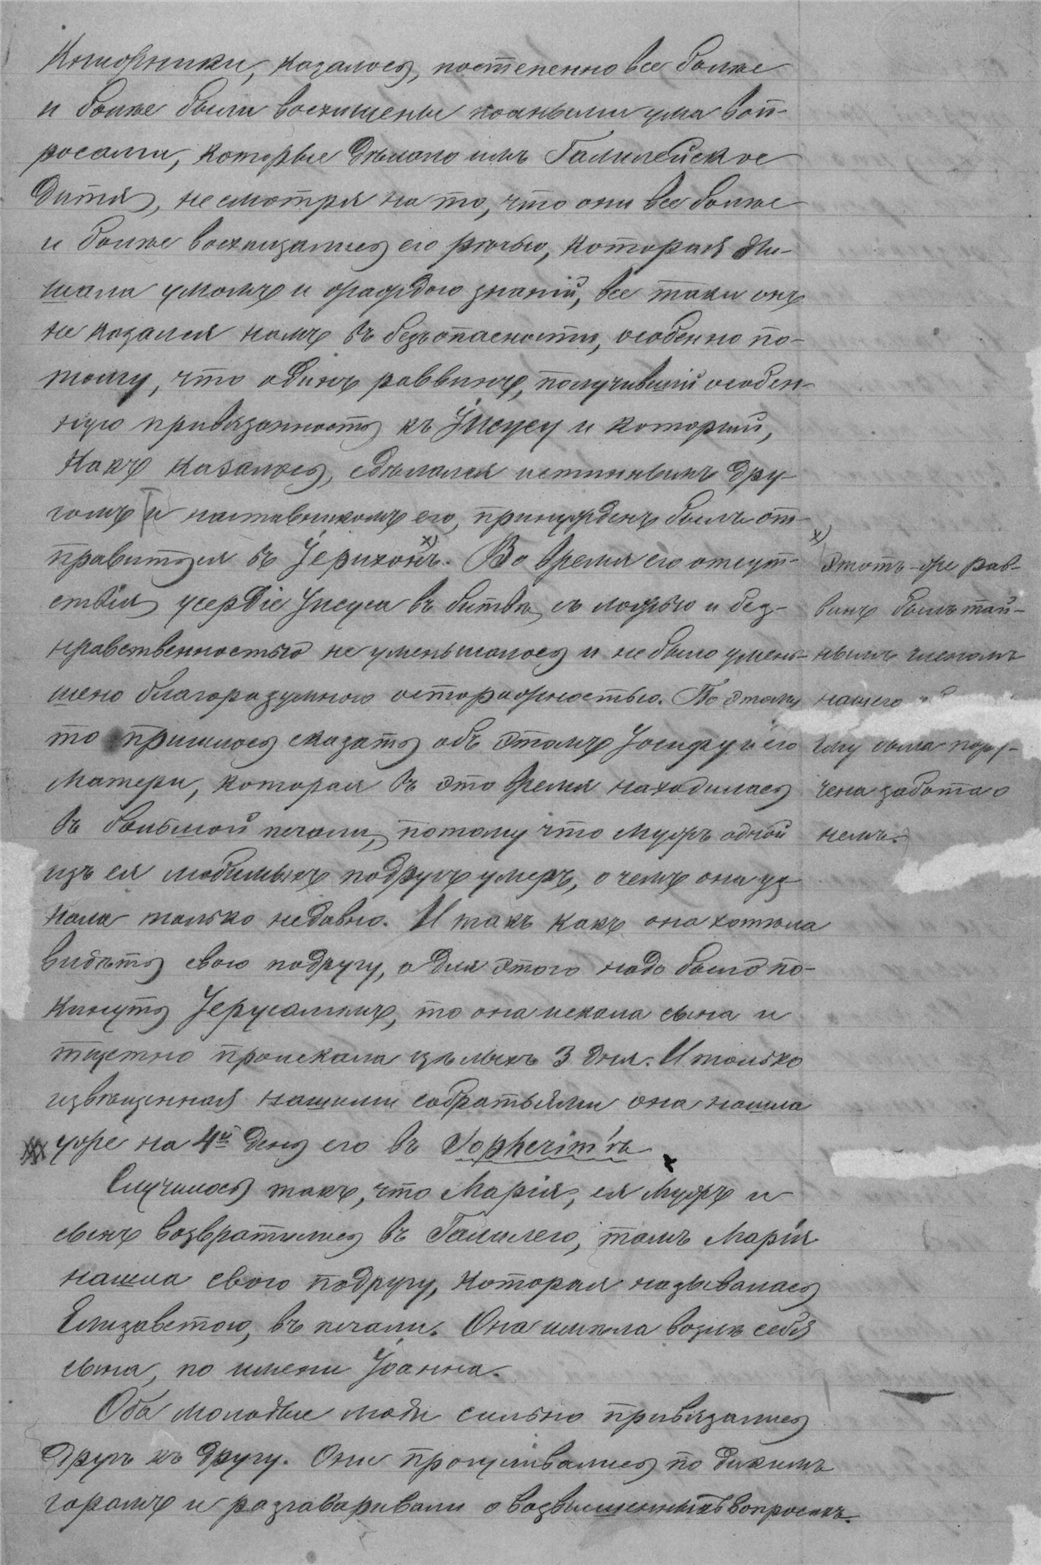 Книжники, казалось, постепенно все болѣе
и болѣе были восхищены полными ума воп-
росами, которые дѣлало имъ Галилейское
дитя, несмотря на то, что они все болѣе
и болѣе восхищались его рѣчью, которая ды-
шала умомъ и жаждою знаній, все таки онъ
не казался намъ въ безъопасности, особенно по-
тому, что одинъ раввинъ, получившій особен-
ную привязанность къ Іисусу и который,
какъ казалось, сдѣлался истиннымъ дру-
гомъ и наставникомъ его, принужденъ былъ от-
правиться въ Іерихонъ. x) Во время его отсут-
ствія усердіе Іисуса въ битвѣ съ ложью и без-
нравственностью не уменьшалось и не было умень-
шено благоразумною осторожностью. По этому
то пришлось сказать объ этомъ Іосифу и его
матери, которая въ это время находилась
въ большой печали, потому что мужъ одной
изъ ея любимыхъ подругъ умеръ, о чемъ она уз
нала только недавно. И такъ какъ она хотѣла
видѣть свою подругу, а для этого надо было по-
кинуть Іерусалимъ, то она искала сына и
тщетно проискала цѣлыхъ 3 дня. И только
извѣщенная нашими собратьями она нашла
уже на 4й день его въ Sopherim'ѣ
Случилось такъ, что Марія, ея мужъ и
сынъ возвратились въ Галилею, тамъ Марія
нашла свою подругу, которая называлась
Елизаветою, въ печали. Она имѣла возлѣ себя
сына, по имени Іоанна.
Оба молодые люди сильно привязались
другъ къ другу. Они прогуливались по дикимъ
горамъ и разговаривали о возвышенныхъ вопросахъ.
x) Этотъ-же рав-
винъ былъ тай-
нымъ членомъ
нашего
ему была пору-
чена забота о
немъ.